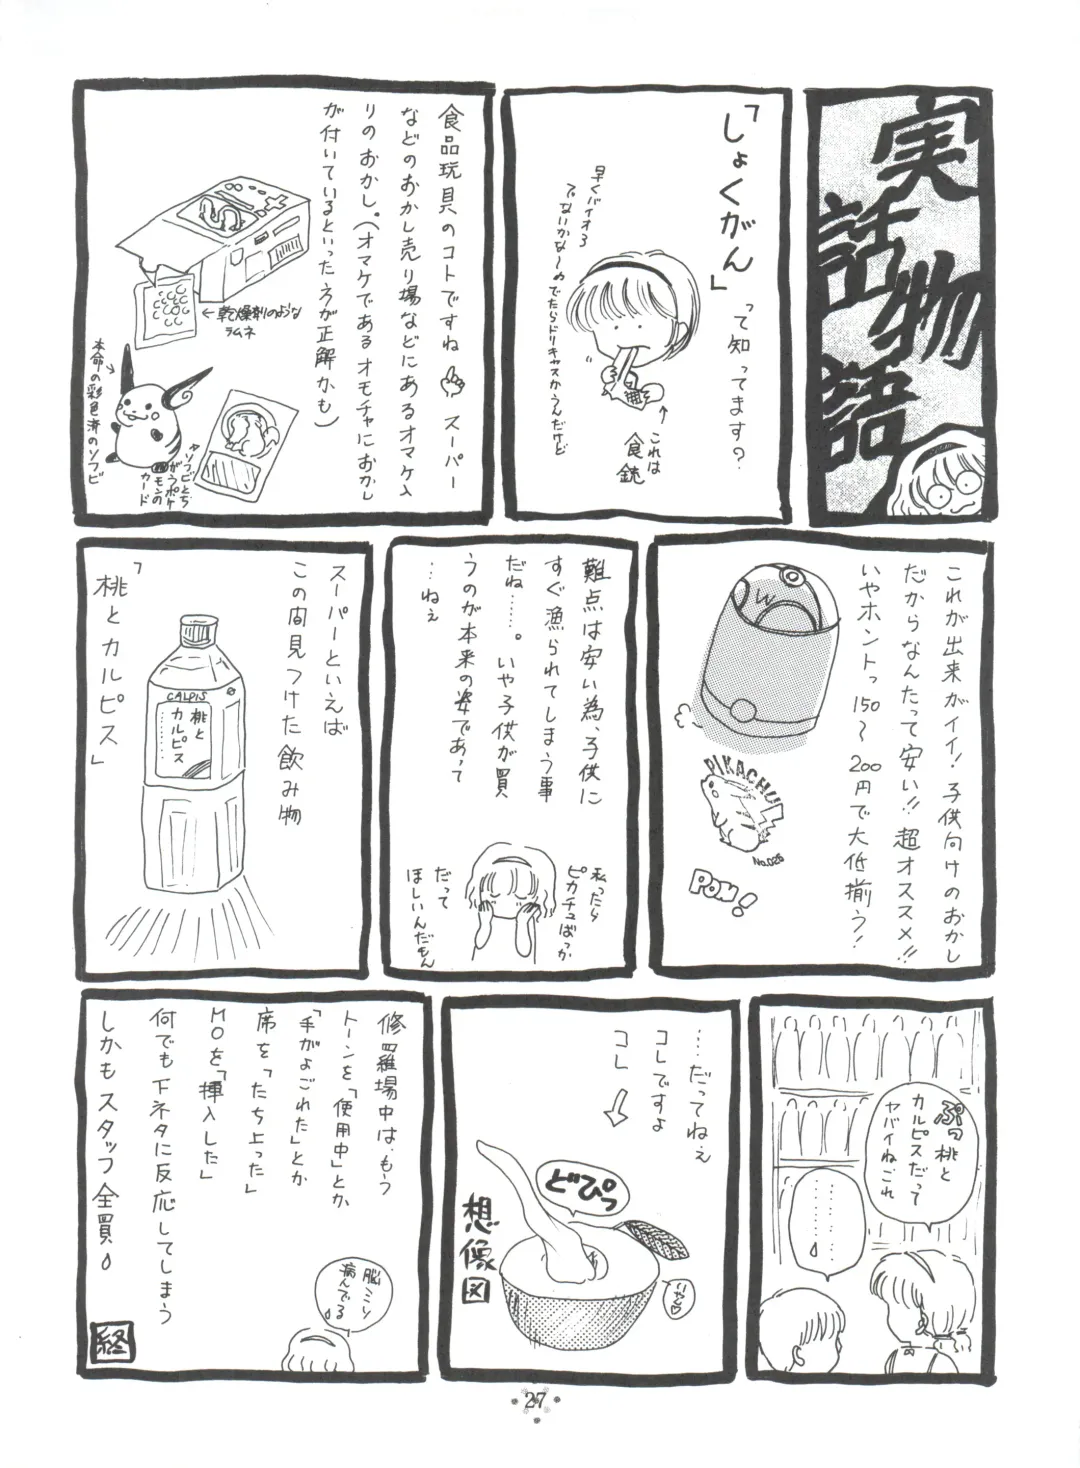 実話物語
「しょくがん」
って知ってます?
早くバイオ3
でないかなーのでたらドリキャスかうんだけど
←これは
食銃
食品玩具のコトですね
スーパー
などのおかし売り場などにあるオマケ入
りのおかし。(オマケであるオモチャにおかし
が付いているといった方が正解かも)
←乾燥剤のような
ラムネ
本命の彩色済のソフビ
ソフビとち
がうポケ
モンの
カード
これが出来がイイ!子供向けのおかし
だからなんたって安い!!超オススメ!!
いやホントっ150〜200円で大低揃う!
PIKACHU
No.026
PON!
難点は安い為、子供に
すぐ漁られてしまう事
だね……。いや子供が買
うのが本来の姿であって
…ねぇ
私ったら
ピカチュばっか
だって
ほしいんだもん
スーパーといえば
この間見つけた飲み物
「桃とカルピス」
CALPIS
桃と
カルピス
ぷっ桃と
カルピスだって
ヤバイねこれ
………
……だってねぇ
コレですよ
コレ→
どぴっ
いやん
想像図
修羅場中は、もう
トーンを「使用中」とか
「手がよごれた」とか
席を「たち上った」
MOを「挿入した」
何でも下ネタに反応してしまう
しかもスタッフ全員
脳ミソ
病んでる
終
27